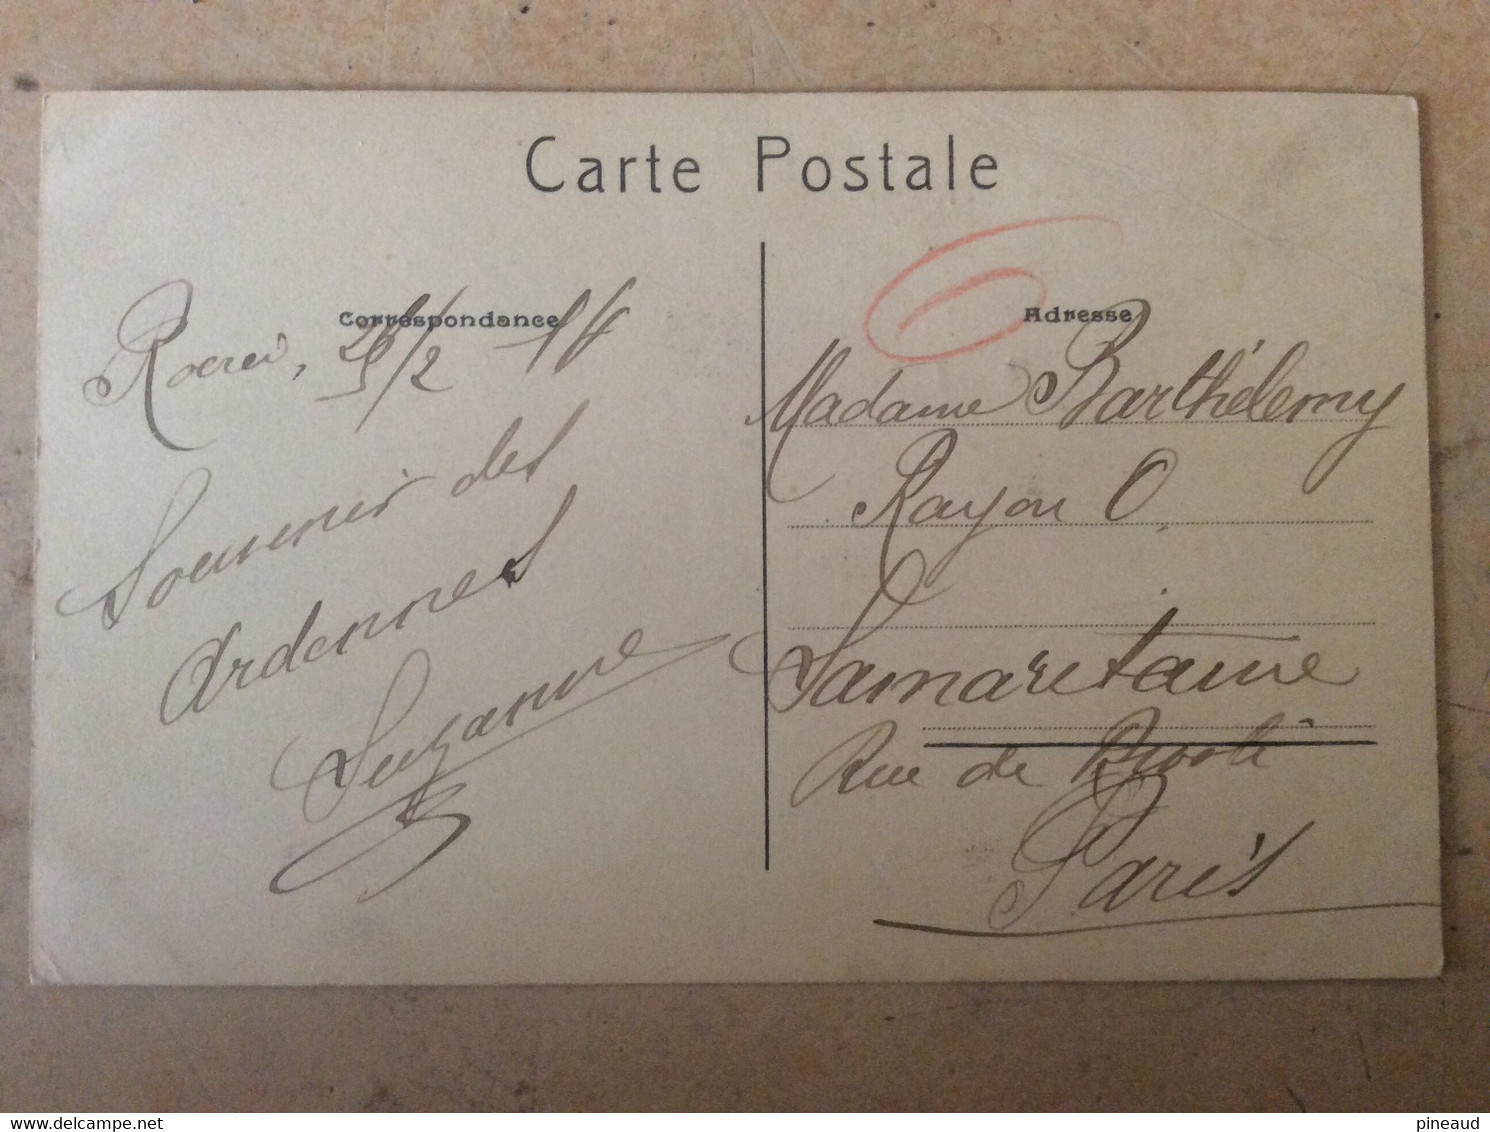 Carte Postale
Correspondance
Rocroi,
Souvenir des
Ardennes
Suzanne
Adresse
Madame Barthélemy
Rayon O.
Samaritaine
Rue de Rivoli
Paris
delcampe.net
pineaud